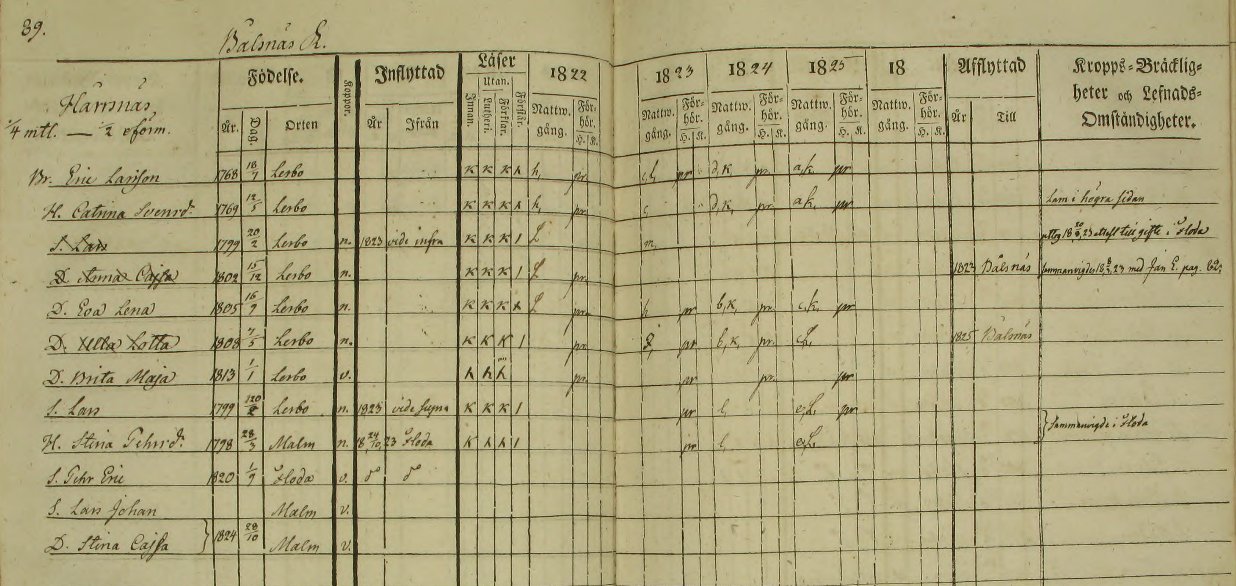 89.
Balsnäs R.
Födelse. Koppor. Inflyttad Läser 1822 1823 1824 1825 18 Afflyttad Kropps-Bräcklig-
Harsnäs, Utan. heter och Lefnads-
1/4 mtl. — 1/2 eförm. År. Dag. Orten År Ifrån Innan. Lutheri. Förklar. Förstår. Nattw. gång. För-hör. H. K. Nattw. gång. För-hör. H. K. Nattw. gång. För-hör. H. K. Nattw. gång. För-hör. H. K. Nattw. gång. För-hör. H. K. År Till Omständigheter.
Br. Eric Larsson 1768 18/7 Lerbo K K K h, pr. pr d,k, pr. a,k, pr
H. Catrina Svensd. 1769 12/5 Lerbo K K K h, pr. d,k, pr a,k, pr Lam i högra sidan
S. Lars 1799 20/2 Lerbo n. 1823 vide infra K K K 1 L m, 23 till gifte i Floda
D. Anna Cajsa 1802 15/12 Lerbo n. K K K 1 L 1823 Balsnäs Sammanvigde 23 med Jan E. pag. 62
D. Eva Lena 1805 16/9 Lerbo n. K K K L pr. pr b,k, pr c,k, pr
D. Ulla Lotta 1808 7/5 Lerbo n. K K K 1 pr. pr b,k, pr. 1825 Balsnäs
D. Brita Maja 1813 1/1 Lerbo v. pr. pr pr. pr
S. Lars 1799 Lerbo n. 1823 vide supra K K K 1 pr pr
H. Stina Pehrsd. 1798 28/3 Malm n. 18 24/10 23 Floda K 1 pr Sammanvigde i Floda
S. Pehr Eric 1820 1/9 Floda v. d d
S. Lars Johan Malm v.
D. Stina Cajsa } 1824 28/10 Malm v.